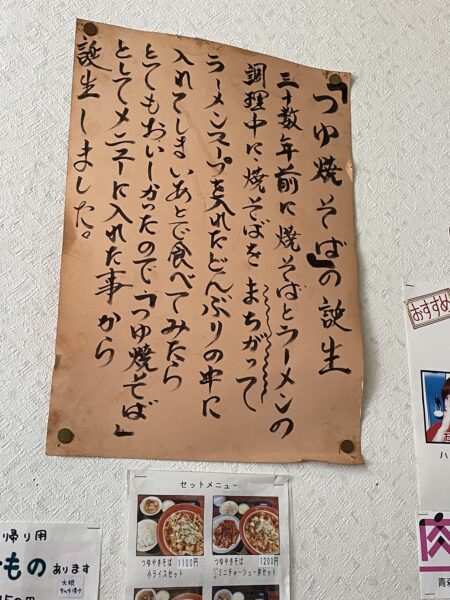 「つゆ焼そば」の誕生
三十数年前に焼そばとラーメンの
調理中に、焼そばをまちがって
ラーメンスープを入れたどんぶりの中に
入れてしまいあとで食べてみたら
とてもおいしかったので「つゆ焼そば」
としてメニューに入れた事から
誕生しました。
おすすめ
セットメニュー
つゆやきそば 1100円
小ライスセット
つゆやきそば 1200円
ミニチャーシュー丼セット
帰り用
もの あります
大根
肉